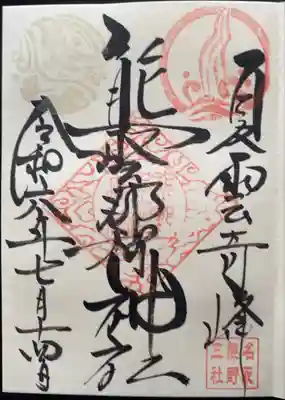 夏雲奇峰
名取熊野三社
熊野那智神社
令和六年七月十四日